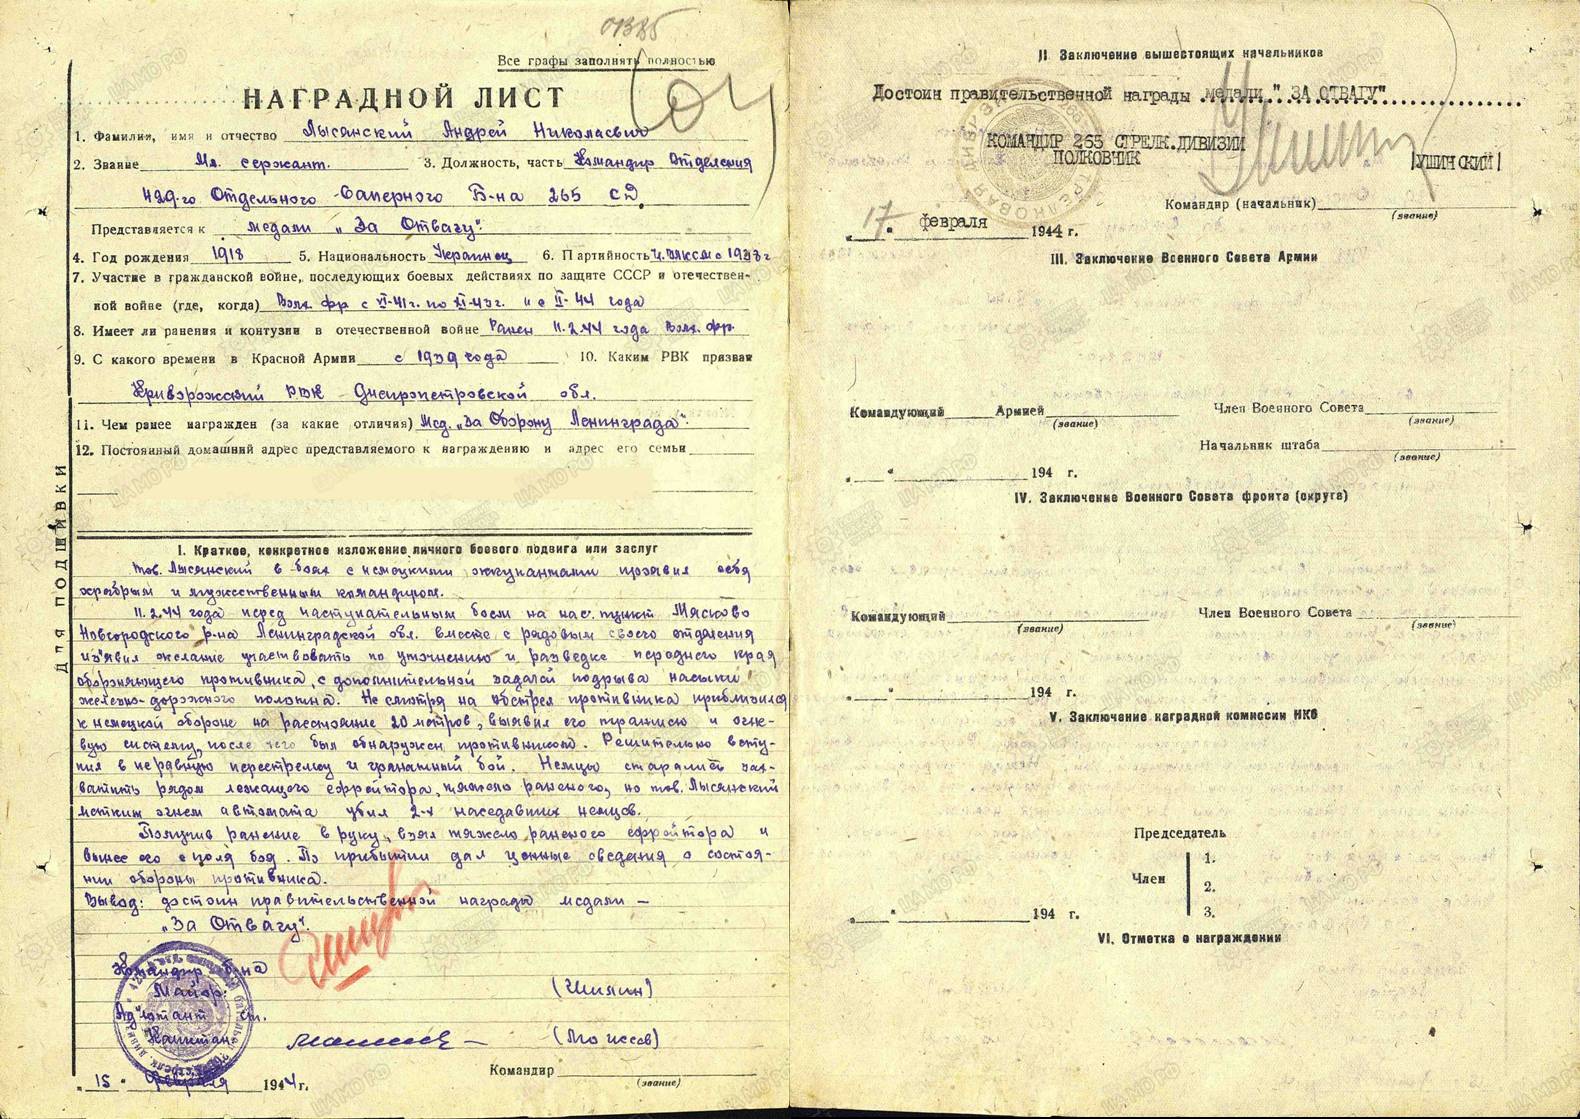 Все графы заполнять полностью
НАГРАДНОЙ ЛИСТ
1. Фамилия, имя и отчество Лысянский Андрей Николаевич
2. Звание Мл. сержант. 3. Должность, часть Командир Отделения
429-го Отдельного Саперного Б-на 265 СД.
Представляется к медали „За Отвагу".
4. Год рождения 1918 5. Национальность Украинец 6. Партийность Ч. ВЛКСМ с 1938 г
7. Участие в гражданской войне, последующих боевых действиях по защите СССР и отечествен-
ной войне (где, когда) Волх. фр с VI-41г. по XI-43г. и с II-44 года
8. Имеет ли ранения и контузии в отечественной войне Ранен 11.2.44 года Волх. фр.
9. С какого времени в Красной Армии с 1939 года 10. Каким РВК призван
Криворожский РВК Днепропетровской обл.
11. Чем ранее награжден (за какие отличия) Мед. „За Оборону Ленинграда".
12. Постоянный домашний адрес представляемого к награждению и адрес его семьи
Для подшивки
I. Краткое, конкретное изложение личного боевого подвига или заслуг
тов. Лысянский в боях с немецкими оккупантами проявил себя
храбрым и мужественным командиром.
11.2.44 года перед наступательным боем на нас. пункт Мясково
Новгородского р-на Ленинградской обл. вместе с рядовым своего отделения
из'явил желание участвовать по уточнению и разведке переднего края
обороняющего противника, с дополнительной задачей подрыва насыпи
железно-дорожного полотна. Не смотря на обстрел противника приблизился
к немецкой обороне на расстояние 20 метров, выявил его траншею и огне-
вую систему, после чего был обнаружен противником. Решительно всту-
пил в неравную перестрелку и гранатный бой. Немцы старались зах-
ватить рядом лежащего ефрейтора, тяжело раненого, но тов. Лысянский
метким огнем автомата убил 2-х наседавших немцев.
Получив ранение в руку, взял тяжело раненого ефрейтора и
вынес его с поля боя. По прибытии дал ценные сведения о состоя-
нии обороны противника.
Вывод: достоин правительственной награды медали –
„За Отвагу".
Командир б-на
Майор: (Шилин)
Ад'ютант ст.
Капитан (Моисеев)
Командир
(звание)
„15" февраля 1944 г.
II Заключение вышестоящих начальников
Достоин правительственной награды медали " ЗА ОТВАГУ"
КОМАНДИР 265 СТРЕЛК.ДИВИЗИИ
ПОЛКОВНИК /УШИНСКИЙ/
Командир (начальник)
(звание)
„17" февраля 1944 г.
III. Заключение Военного Совета Армии
Командующий Армией Член Военного Совета
(звание) (звание)
Начальник штаба
(звание)
„ " 194 г.
IV. Заключение Военного Совета фронта (округа)
Командующий Член Военного Совета
(звание) (звание)
„ " 194 г.
V. Заключение наградной комиссии НКО
Председатель
Член 1.
2.
3.
„ " 194 г.
VI. Отметка о награждении